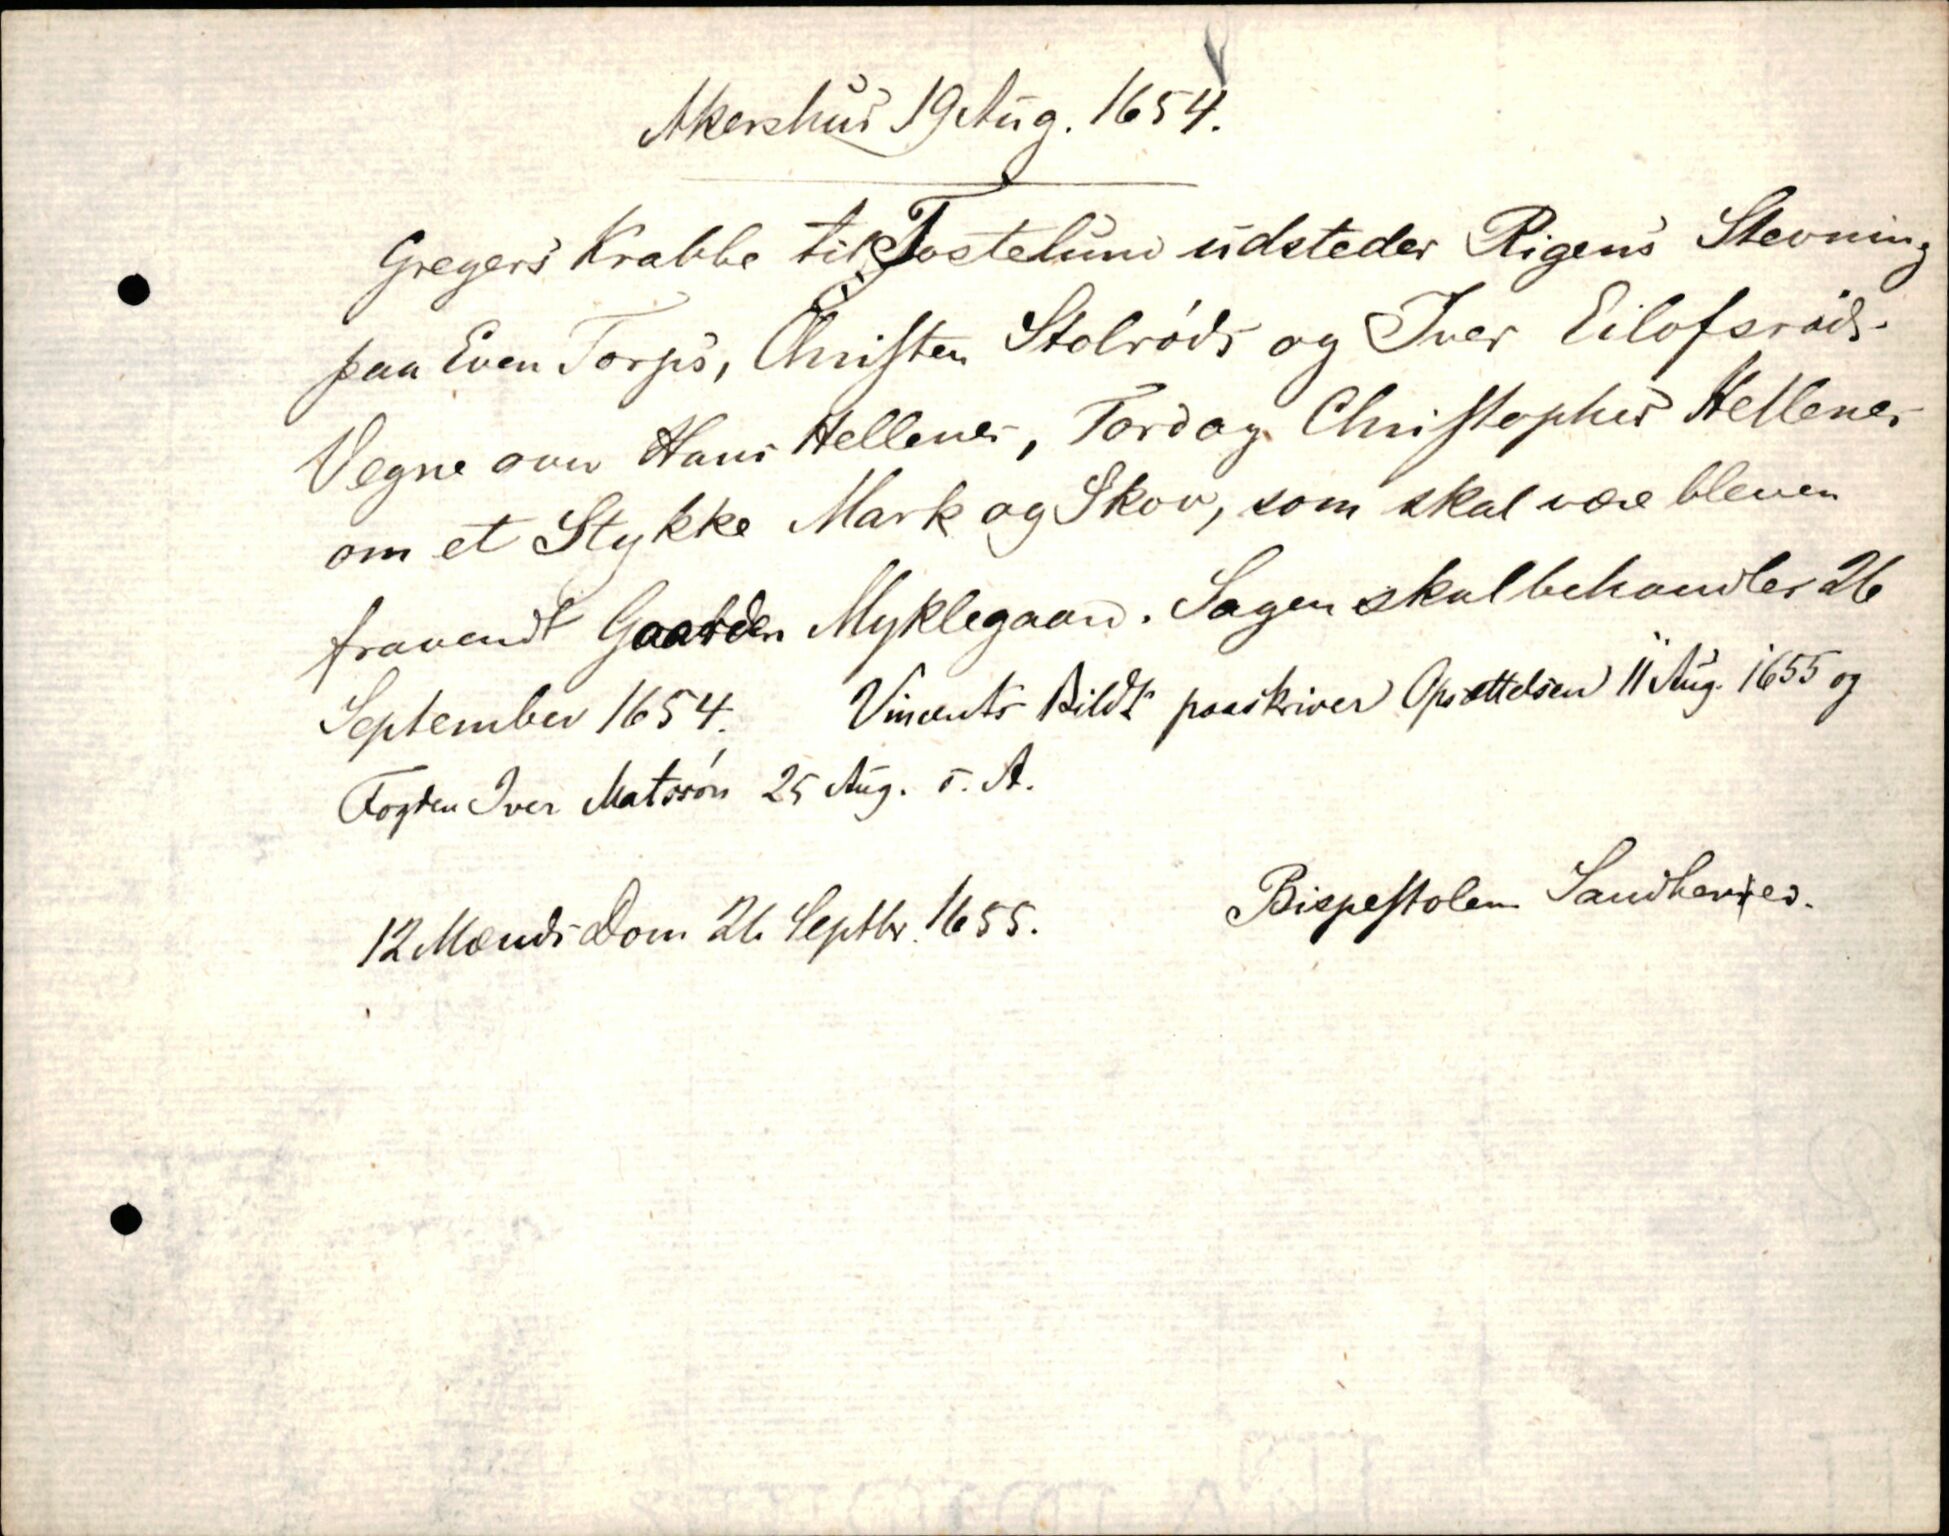 Akershus 19 Aug. 1654.
Gregers Krabbe til Tostelund udsteder Rigens Stevning
paa Even Torps, Christen Stolrøds og Iver Eilofsrøds
Vegne over Hans Hellenes, Tord og Christophers Hellenes
om et Stykke Mark og Skov, som skal være bleven
fravendt Gaarden Myklegaard. Sagen skal behandles 26
September 1654. Vincents Bildt paaskriver Opsættelsen 11 Aug. 1655 og
Fogden Iver Matssøn 25 Aug. s. A.
12 Mænds Dom 26 Septbr. 1655.
Bispestolen Sandherred.